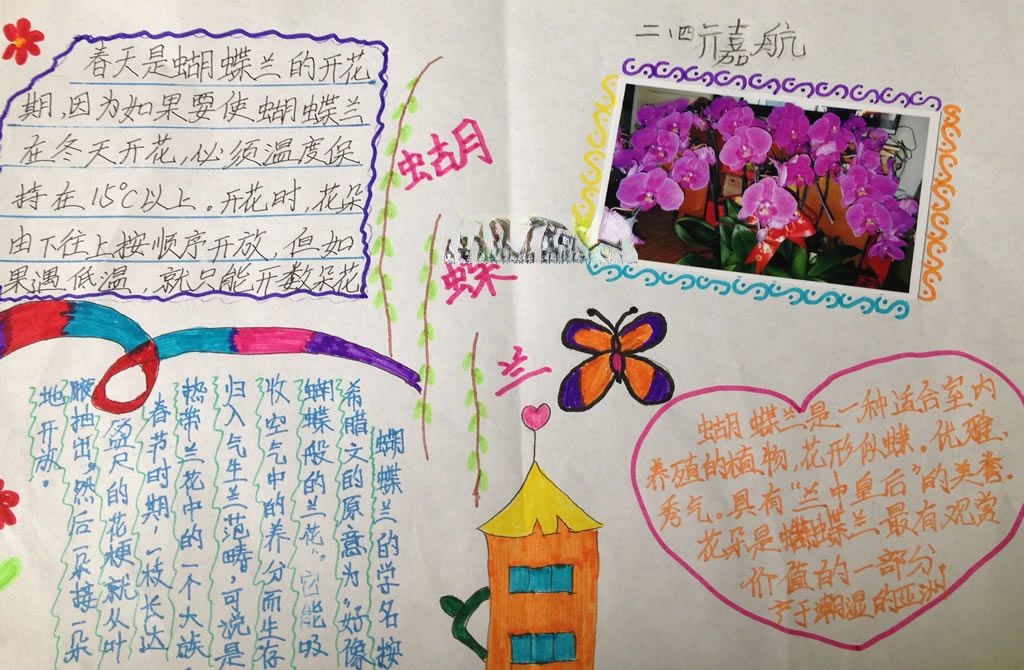 二.四亓嘉航
春天是蝴蝶兰的开花
期,因为如果要使蝴蝶兰
在冬天开花,必须温度保
持在15℃以上。开花时,花朵
由下往上按顺序开放,但如
果遇低温,就只能开数朵花
蝴
蝶
兰
蝴蝶兰的学名按
希腊文的原意为“好像
蝴蝶般的兰花”。它能吸
收空气中的养分而生存
归入气生兰范畴,可说是
热带兰花中的一个大族
春节时期,一枝长达
盈尺的花梗就从叶
腋抽出,然后一朵接一朵
地开放。
蝴蝶兰是一种适合室内
养殖的植物,花形似蝶。优雅.
秀气。具有“兰中皇后”的美誉.
花朵是蝴蝶兰最有观赏
价值的一部分,
产于潮湿的亚洲